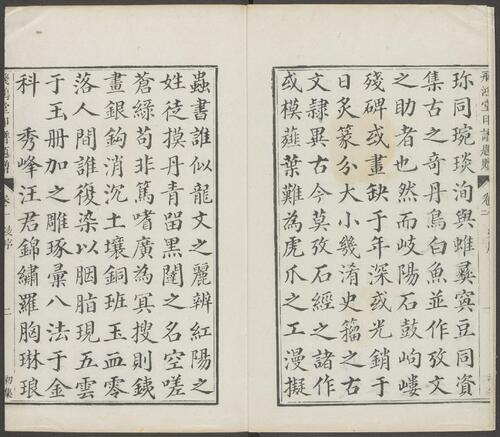 珎同琬琰洵與蜼彝寅豆同資
集古之奇丹烏白魚並作攷文
之助者也然而岐陽石鼓岣嶁
殘碑或畫缺于年深或光銷于
日炙篆分大小幾淆史籀之古
文隸異古今莫攷石經之諸作
或模薤葉難為虎爪之工漫擬
蟲書誰似龍文之麗辨紅陽之
姓徒摸丹青畱黑闥之名空嗟
蒼綠苟非篤嗜廣為冥搜則銕
畫銀鈎消沉土壤銅班玉血零
落人間誰復染以胭脂現五雲
于玉冊加之雕琢彙八法于金
科　秀峰汪君錦繡羅胸琳琅
飛鴻堂印譜題贈
卷一
序
一
初集